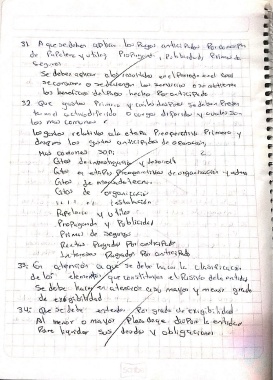 31. A que se deben aplicar los Pagos anticipados Por concepto
de Papeleria y utiles, Propaganda, Publicidad y Primas de
Seguros.
Se deben aplicar a los resultados en el Periodo en el cual
se consumen o se devengan los servicios o se obtienen
los beneficios del Pago hecho Por anticipado
32. Que gastos Primero y cuales despues se deben Presentar
en el activo diferido o cargos diferidos y cuales son
los mas comunes
Los gastos relativos a la etapa Preoperativa Primero, y
despues los gastos anticipados de operacion,
Mas comunes son;
Gtos de investigacion y desarroll
Gtos en etapas Preoperativas de organizacion y admon
Gtos de mercadotecnia.
Gtos de organizacion
" " " instalacion
Papeleria y utiles
Propaganda y Publicidad
Primas de seguros
Rentas Pagadas Por anticipado
Intereses Pagados Por anticipado
33. En atencion a que se debe hacer la clasificacion
de los elementos que constituyen el Pasivo de la entidad
Se debe hacer en atencion a su mayor y menor grado
de exigibilidad
34. Que se debe entender Por grado de exigibilidad
Al menor o mayor Plazo de que dispone la entidad
Para liquidar sus deudas y obligaciones